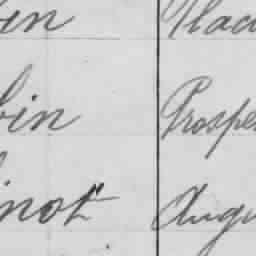 en Plac
bin Prosper
inot Augu